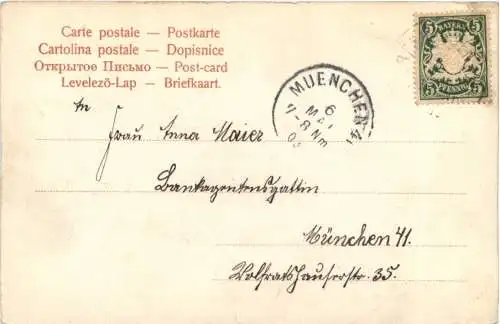 Carte postale — Postkarte
Cartolina postale — Dopisnice
Открытое Письмо — Post-card
Levelező-Lap — Briefkaart.
5 BAYERN 5
5 PFENNIG 5
MUENCHEN 41
6
MAI
7-8 Nm
An
Frau Anna Maier
Bankagentensgattin
München 41.
Wolfratshauserstr. 35.